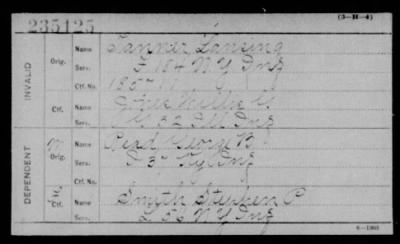 235125
(3—H—4)
INVALID
Orig.
Name Tanner Lansing
Serv. F 184 N.Y Inf
Ctf. No. 185711
Ctf.
Name Willis G
Serv. G 32 Ill Inf
DEPENDENT
M
Orig.
Name Read George B
Serv. I 37 Ky Inf
Ctf. No.
Ctf.
Name Smith Stephen P
Serv. L 56 N Y Inf
6—1903